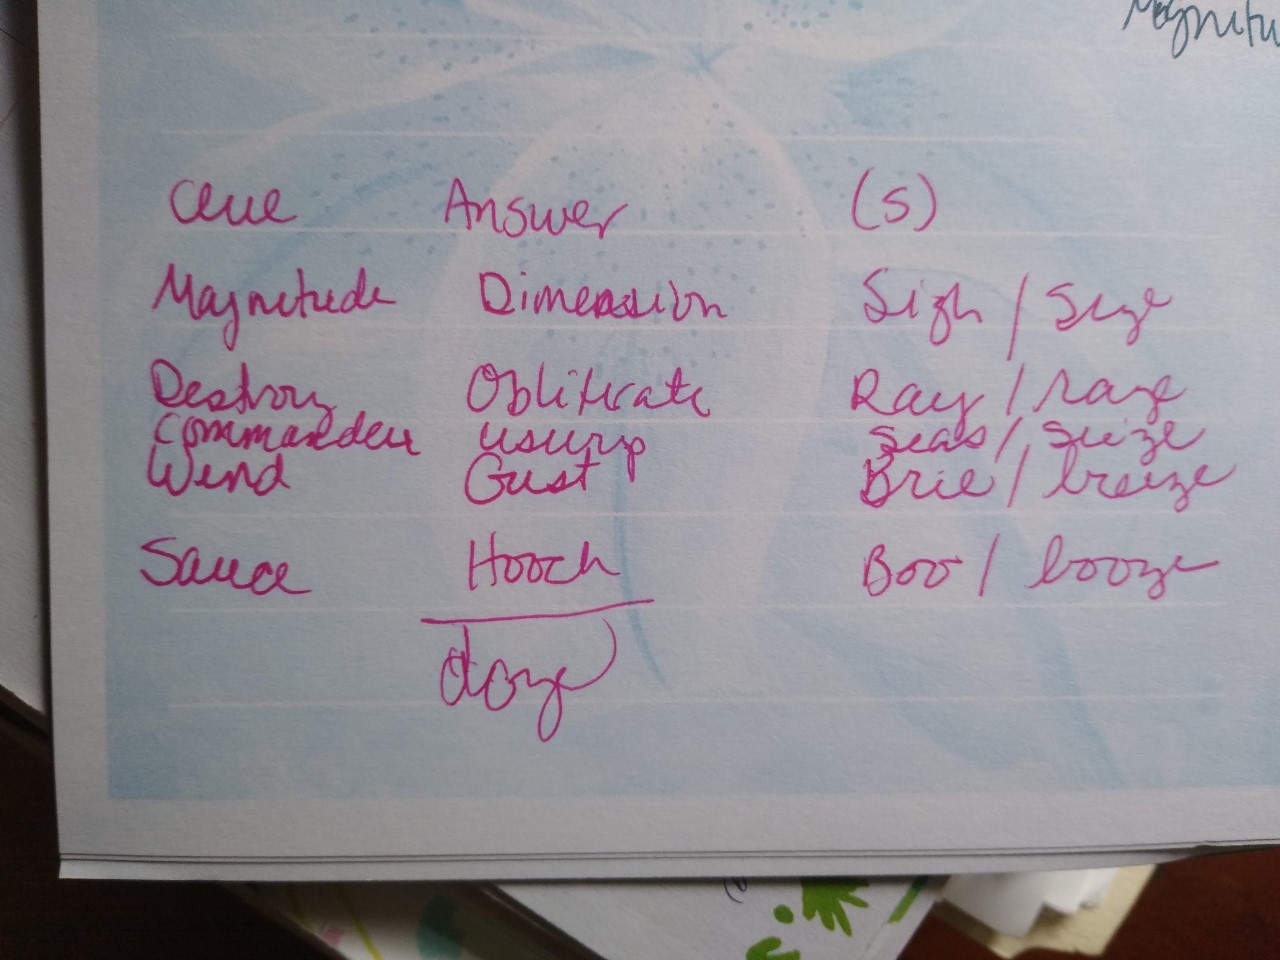 Magnitu
Clue Answer (s)
Magnitude Dimension Sigh / Size
Destroy Obliterate Ray / raze
Commandeer usurp Seas / Seize
Wind Gust Brie / breeze
Sauce Hooch Boo / booze
doze